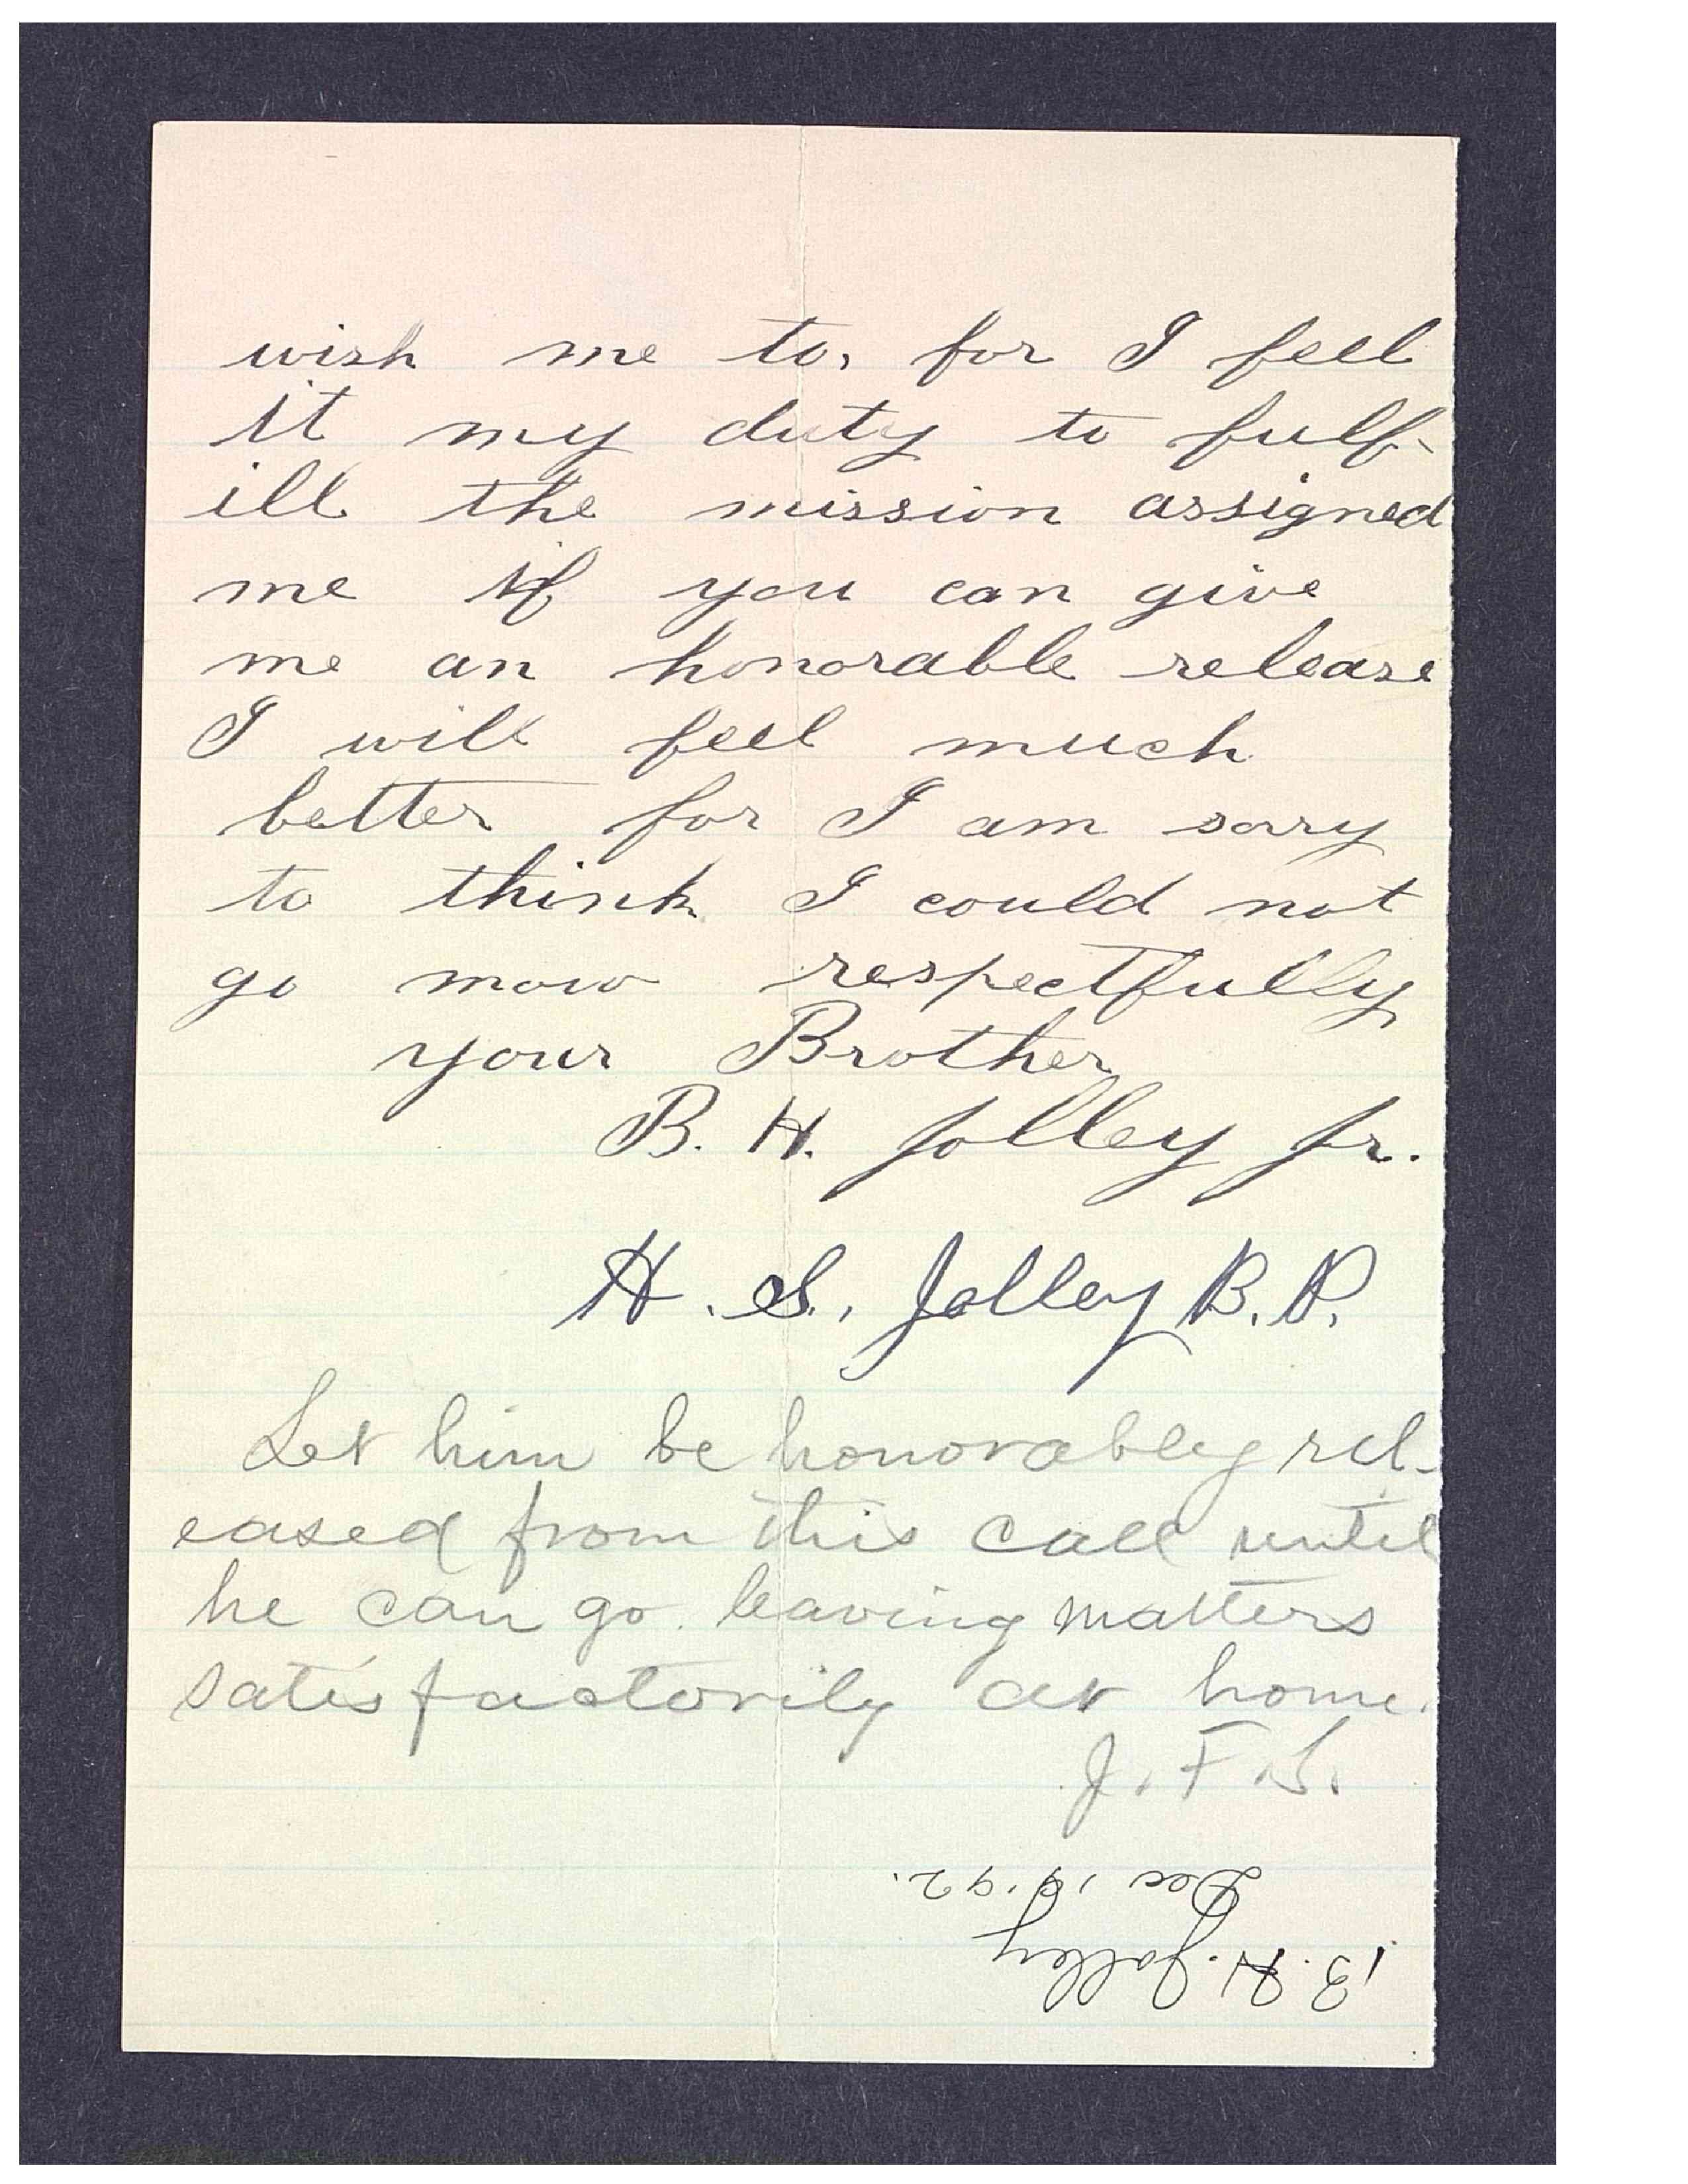 wish me to, for I feel
it my duty to fulf-
ill the mission assigned
me if you can give
me an honorable release
I will feel much
better for I am sorry
to think I could not
go now respectfully
your Brother
B. H. Jolley Jr.
H. S. Jolley B.P.
Let him be honorably rel-
eased from this call until
he can go leaving matters
satisfactorily at home.
J. F. S.
B. H. Jolley
Dec '92.